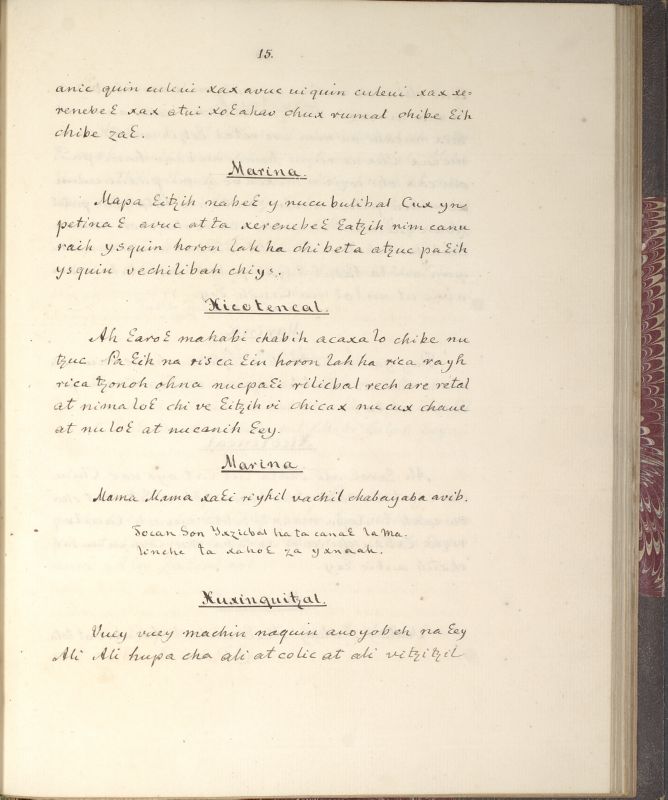 15.
anic quin culeui xax avuc uiquin culeui xax xe=
renebeɛ xax atui xoɛahav chux rumal chibe ɛih
chibe zaɛ.
Marina.
Mapa ɛitꜩih nabeɛ y nucubulibal Cux yn
petinaɛ avuc at ta xerenebeɛ ɛatꜩih nim canu
raih ysquin horon lah ha chibeta atꜩuc paɛih
ysquin vechilibah chiys.
Xicotencal.
Ah ɛaroɛ mahabi chabih acaxa lo chibe nu
tꜩuc Pa ɛih na risca ɛin horon lah ha rica rayh
rica tꜩonoh ohna nucpaɛi rilicbal rech are retal
at nima loɛ chi ve ɛitꜩih vi chicax nu cux chaue
at nu loɛ at nucanih ɛey.
Marina
Mama Mama xaɛi riyhil vachil chabayaba avib.
Tocan Son Yxzicbal ha ta canaɛ la Ma.
linche ta xahoɛ za yxnaah.
Xuxinquitꜩal.
Vuey vuey machin naquin auoyobeh na ɛey
Ali Ali hupa cha ali at colic at ali vitꜩitꜩil